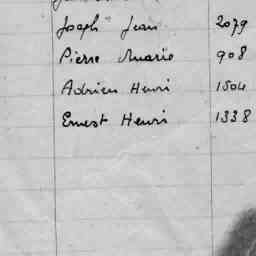 Joseph Jean 2079
Pierre Marie 908
Adrien Henri 1504
Ernest Henri 1338